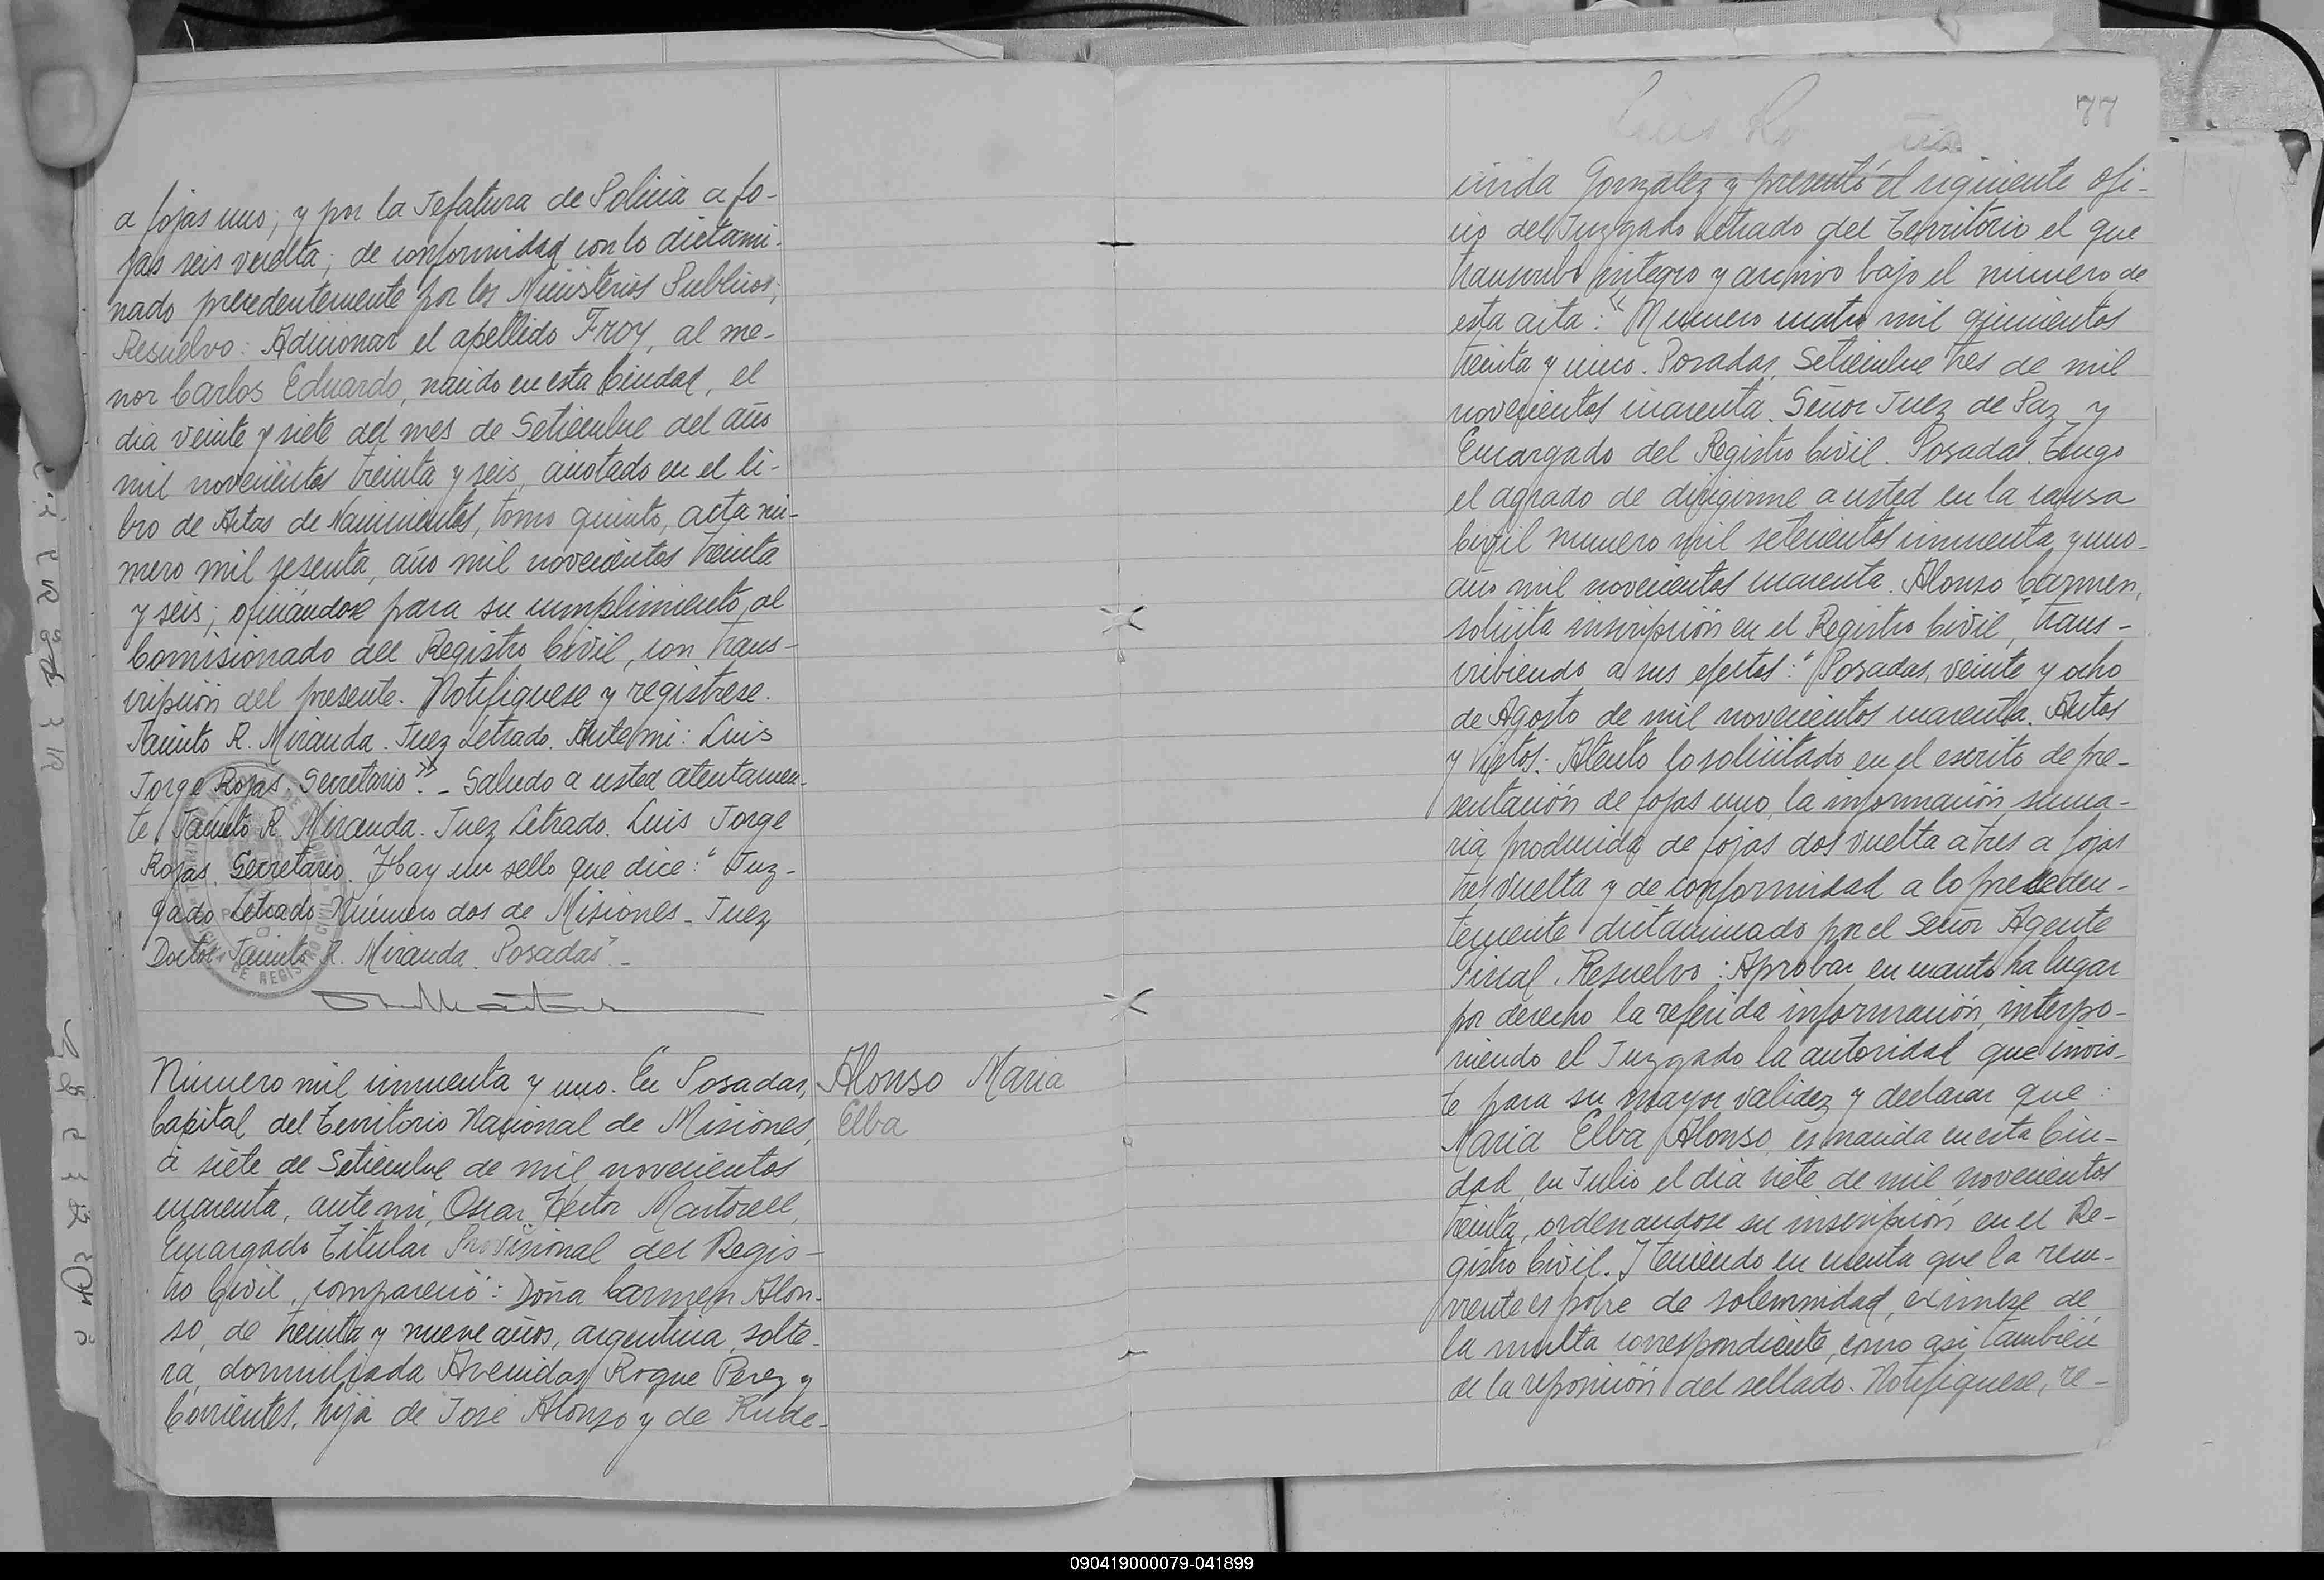 a fojas uno; y por la Jefatura de Policia a fo-
jas seis vuelta; de conformidad con lo dictami-
nado precedentemente por los Ministerios Publicos;
Resuelvo: Adicionar el apellido Froy, al me-
nor Carlos Eduardo, nacido en esta Ciudad, el
dia veinte y siete del mes de Setiembre del año
mil novecientos treinta y seis, anotado en el li-
bro de Actas de Nacimientos, tomo quinto, acta nú-
mero mil sesenta, año mil novecientos treinta
y seis; oficiándose para su cumplimiento, al
Comisionado del Registro Civil, con trans-
cripción del presente. Notifiquese y registrese.
Jacinto R. Miranda. Juez Letrado. Ante mi: Luis
Jorge Rojas. Secretario". - Saludo a usted atentamen-
te. Jacinto R. Miranda. Juez Letrado. Luis Jorge
Rojas. Secretario. Hay un sello que dice: "Juz-
gado Letrado Número dos de Misiones - Juez
Doctor Jacinto R. Miranda. Posadas" -
Número mil cincuenta y uno. En Posadas,
Capital del Territorio Nacional de Misiones,
a siete de Setiembre de mil novecientos
cuarenta, ante mi, Oscar Hector Martorell,
Encargado Titular Provisional del Regis-
tro Civil, compareció: Doña Carmen Alon-
so, de treinta y nueve años, argentina, solte-
ra, domiciliada Avenidas Roque Perez y
Corrientes, hija de José Alonso y de Rude-
Alonso Maria
Elba
77
cinda Gonzalez y presentó el siguiente ofi-
cio del Juzgado Letrado del Territorio el que
transcribo integro y archivo bajo el número de
esta acta: "Numero cuatro mil quinientos
treinta y cinco. Posadas, Setiembre tres de mil
novecientos cuarenta. Señor Juez de Paz y
Encargado del Registro Civil. Posadas. Tengo
el agrado de dirigirme a usted en la causa
Civil numero mil setecientos cincuenta y uno-
año mil novecientos cuarenta. Alonso Carmen,
solicita inscripción en el Registro Civil", trans-
cribiendo a sus efectos: "Posadas, veinte y ocho
de Agosto de mil novecientos cuarenta. Autos
y Vistos: Atento lo solicitado en el escrito de pre-
sentación de fojas uno, la información suma-
ria producida de fojas dos vuelta a tres a fojas
tres vuelta y de conformidad a lo preceden-
temente dictaminado por el Señor Agente
Fiscal. Resuelvo: Aprobar en cuanto ha lugar
por derecho la referida información, interpo-
niendo el Juzgado la autoridad que invis-
te para su mayor validez y declarar que:
Maria Elba Alonso, es nacida en esta Ciu-
dad, en Julio el dia siete de mil novecientos
treinta, ordenandose su inscripción en el Re-
gistro Civil. I teniendo en cuenta que la recu-
rrente es pobre de solemnidad, eximese de
la multa correspondiente, como asi también
de la reposición del sellado. Notifiquese, re-
090419000079-041899